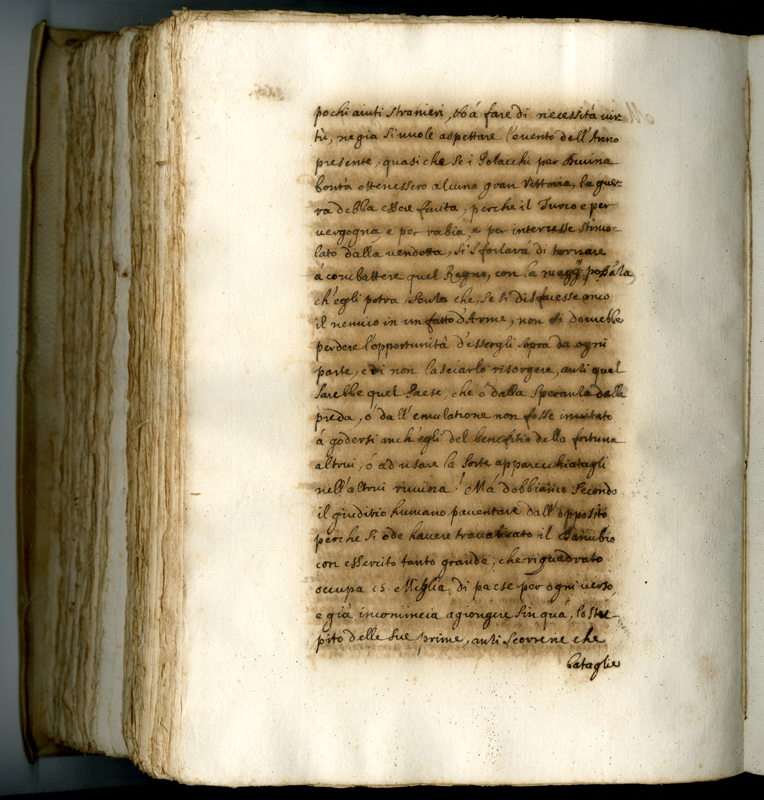 pochi aiuti stranieri, ond'à fare di necessità vir-
tù, ne gia si vuole aspettare l'evento dell'Anno
presente, quasi che se i Polacchi per Divina
bontà ottenessero alcuna gran Vittoria, la guer-
ra debba esser finita, perche il Turco e per
vergogna e per rabia, e per interesse stimo-
lato dalla vendetta, si sforzarà di tornare
à combattere quel Regno, con la magg.r possãza,
ch'egli potrà, senza che, se si disfacesse anco
il nemico in un fatto d'Arme, non si dovrebbe
perdere l'opportunità d'essergli sopra da ogni
parte, e di non lasciarlo risorgere, anzi qual
sarebbe quel Paese, che ò dalla speranza della
preda, ò dall'emulatione non fosse invitato
à godersi anch'egli del benefitio della fortuna
altrui, ò ad usare la sorte apparecchiatagli
nell'altrui ruvina! Mà dobbiamo secondo
il giuditio humano paventare dall'opposito
perche si ode havere travalicato il Danubio
con essercito tanto grande, che riquadrato
occupa 15. Miglia di paese per ogni verso,
e già incomincia a giongere sin quà, lo stre-
pito delle sue prime, anzi scorrerie che
bataglie